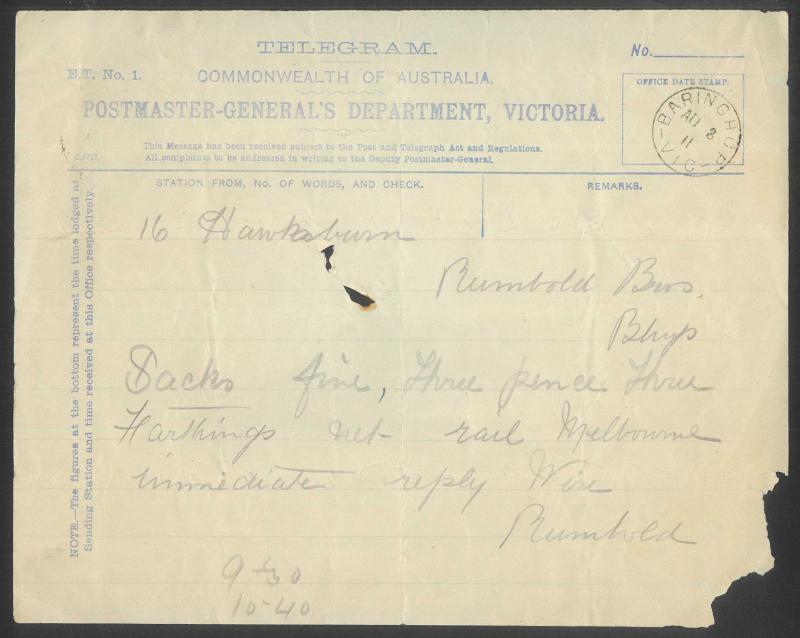 TELEGRAM.
No.
E.T. No. 1.
COMMONWEALTH OF AUSTRALIA.
OFFICE DATE STAMP.
POSTMASTER-GENERAL'S DEPARTMENT, VICTORIA.
BARINGHUP
AU 3
11
VIC
This Message has been received subject to the Post and Telegraph Act and Regulations.
All complaints to be addressed in writing to the Deputy Postmaster-General.
STATION FROM, No. OF WORDS, AND CHECK.
REMARKS.
NOTE.—The figures at the bottom represent the time lodged at
Sending Station and time received at this Office respectively.
16 Hawksburn
Rumbold Bros.
Bhup
Sacks fine, three pence three
Farthings net rail Melbourne
immediate reply Wire
Rumbold
9-30
10-40